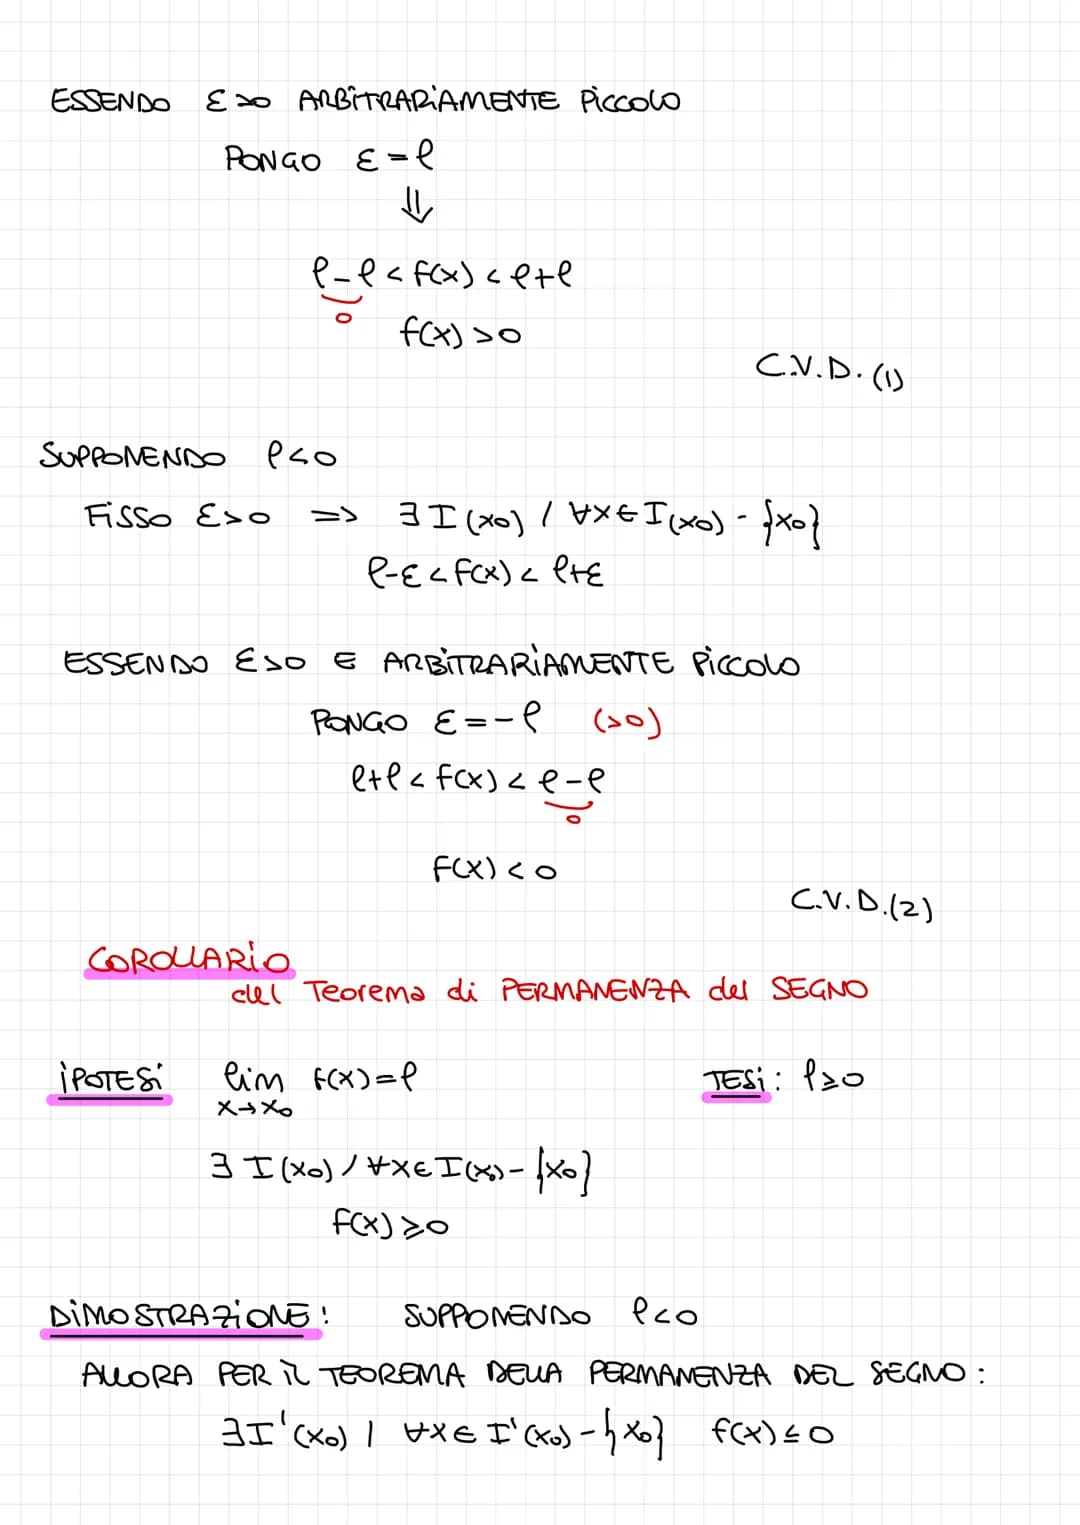 ESSENDO ε>0 ARBITRARIAMENTE PICCOLO
PONGO ε=ℓ
⇓
ℓ-ℓ < f(x) < ℓ+ℓ
0
f(x) >0
C.V.D. (1)
SUPPONENDO ℓ<0
FISSO ε>0 => ∃ I(x0) / ∀x∈I(x0) - {x0}
ℓ-ε < f(x) < ℓ+ε
ESSENDO ε>0 E ARBITRARIAMENTE PICCOLO
PONGO ε=-ℓ (>0)
ℓ+ℓ < f(x) < ℓ-ℓ
0
f(x) < 0
C.V.D.(2)
COROLLARIO
del Teorema di PERMANENZA del SEGNO
IPOTESI lim f(x)=ℓ TESI: ℓ≥0
x→x0
∃ I(x0) / ∀x∈I(x0) - {x0}
f(x) ≥0
DIMOSTRAZIONE! SUPPONENDO ℓ<0
ALLORA PER IL TEOREMA DELLA PERMANENZA DEL SEGNO:
∃I'(x0) | ∀x∈ I'(x0) - {x0} f(x) ≤ 0